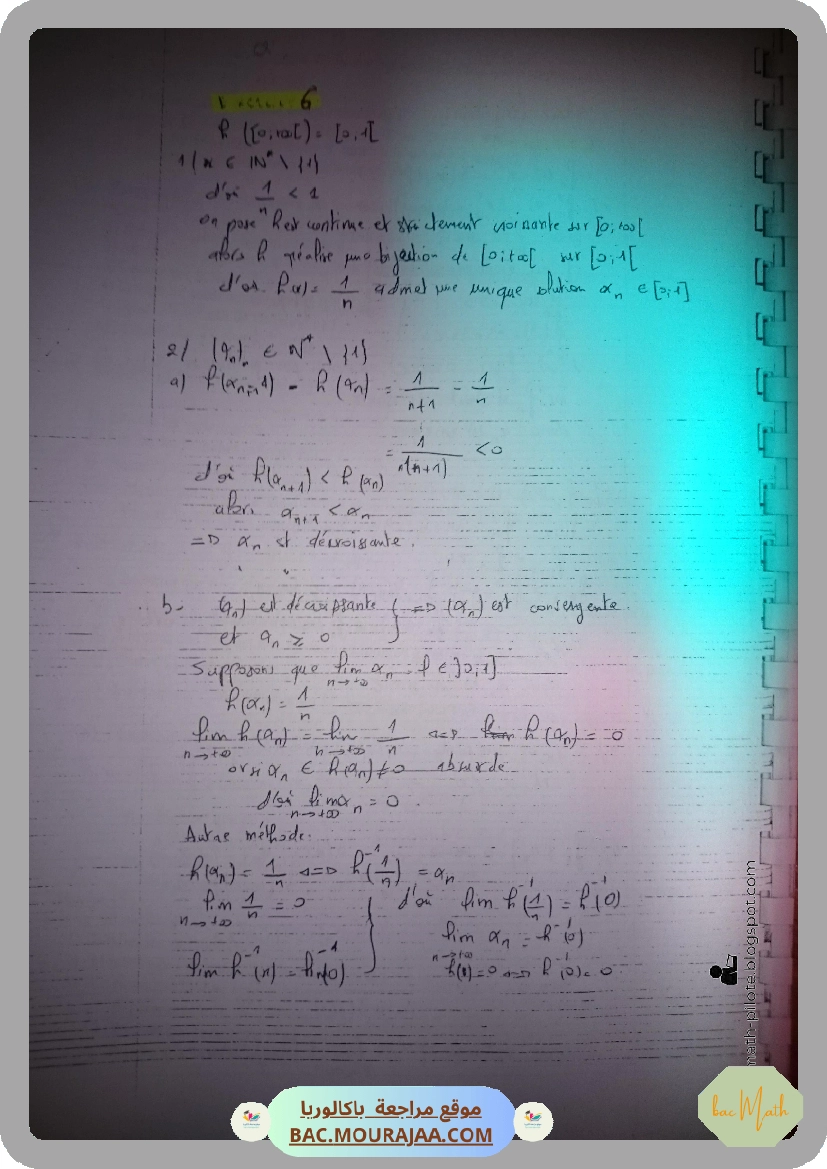 6
h ([0;+∞[) = [0,1[
1/ n ∈ IN* \ {1}
d'où 1/n < 1
on pose h est continue et strictement croissante sur [0;+∞[
alors h réalise une bijection de [0;+∞[ sur [0;1[
d'où h(x) = 1/n admet une unique solution αn ∈ [0,1]
2/ (αn) n ∈ N* \ {1}
a) h(αn+1) - h(αn) = 1/(n+1) - 1/n
= 1/(n(n+1)) < 0
d'où h(αn+1) < h(αn)
alors αn+1 < αn
=> αn est décroissante.
b- (αn) est décroissante } => (αn) est convergente.
et αn ≥ 0
Supposons que lim n→+∞ αn = l ∈ ]0;1]
h(αn) = 1/n
lim n→+∞ h(αn) = lim n→+∞ 1/n <=> h(αn) = 0
or si αn ∈ h(αn) ≠ 0 absurde
d'où lim n→+∞ αn = 0.
Autre méthode.
h(αn) = 1/n <=> h⁻¹(1/n) = αn
lim n→+∞ 1/n = 0 } d'où lim h⁻¹(1/n) = h⁻¹(0)
lim αn = h⁻¹(0)
n→+∞
lim h⁻¹(n) = h⁻¹(0)
h(0) = 0 <=> h⁻¹(0) = 0
math-pilote.blogspot.com
موقع مراجعة باكالوريا
BAC.MOURAJAA.COM
bac Math